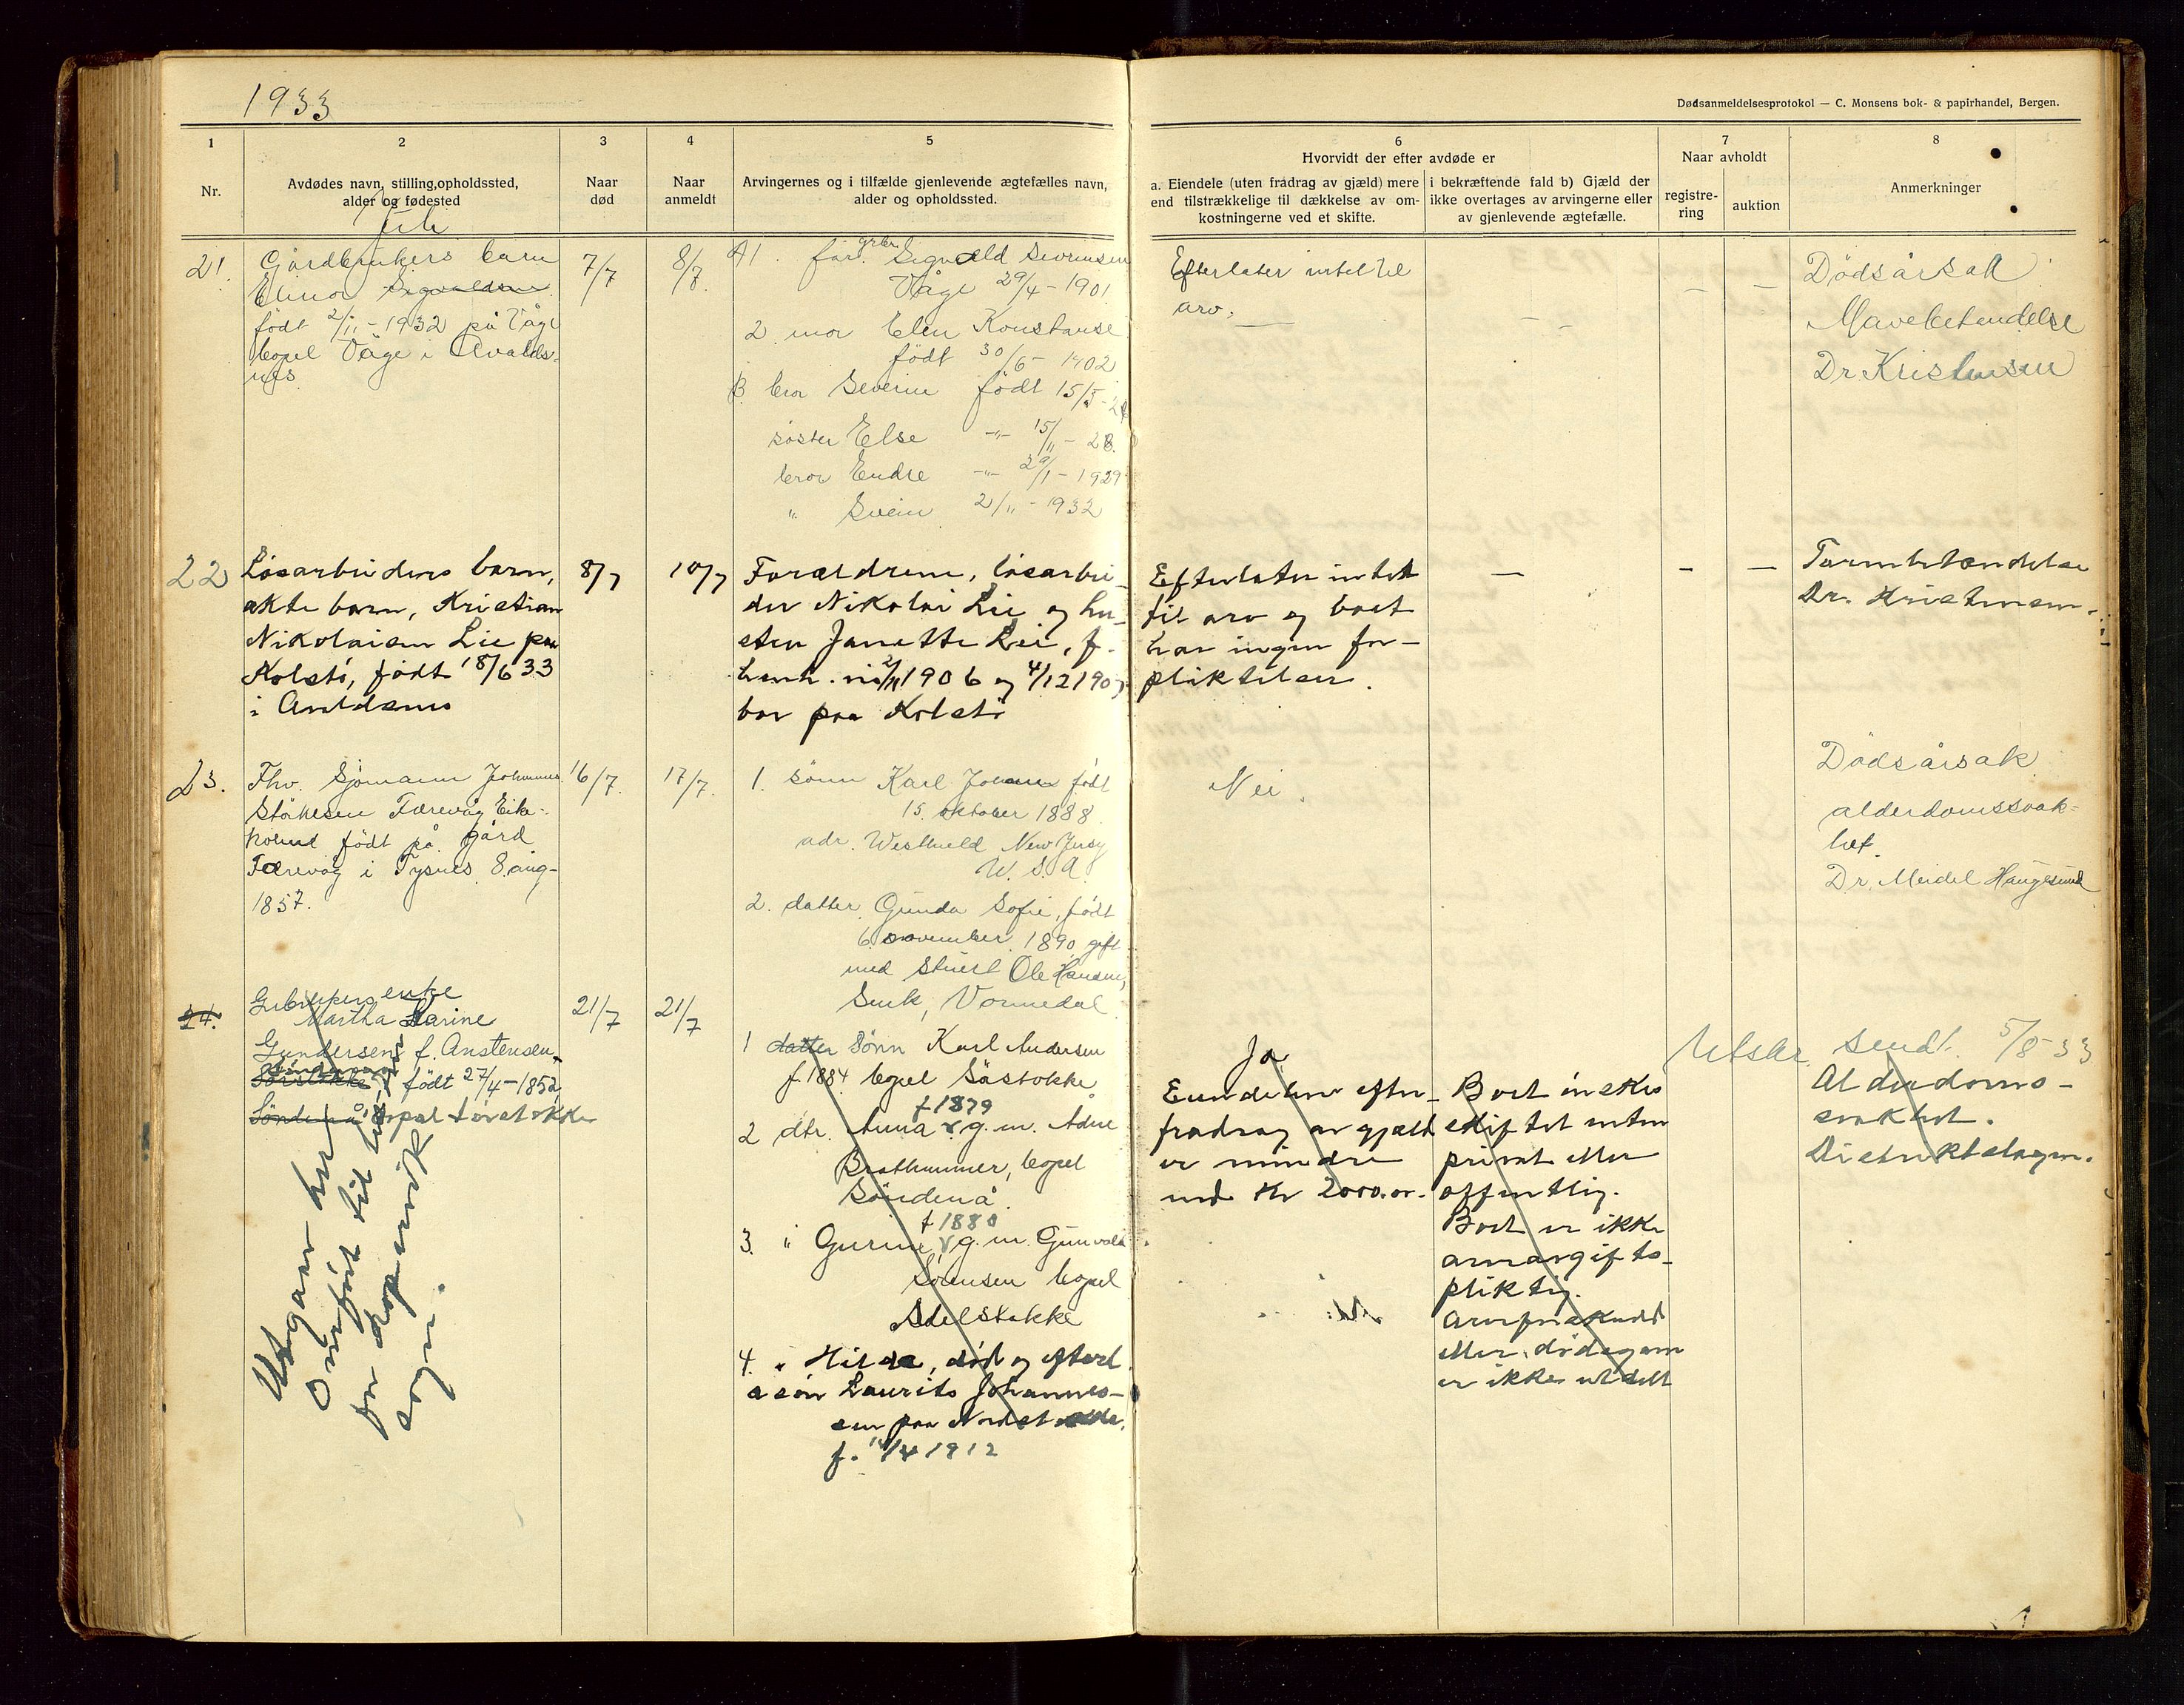 1933
Dødsanmeldelsesprotokol — C. Monsens bok- & papirhandel, Bergen.
1
Nr.
2
Avdødes navn, stilling, opholdssted,
alder og fødested
3
Naar
død
4
Naar
anmeldt
5
Arvingernes og i tilfælde gjenlevende ægtefælles navn,
alder og opholdssted.
6
Hvorvidt der efter avdøde er
a. Eiendele (uten fradrag av gjæld) mere
end tilstrækkelige til dækkelse av om-
kostningerne ved et skifte.
i bekræftende fald b) Gjæld der
ikke overtages av arvingerne eller
av gjenlevende ægtefælle.
7
Naar avholdt
registre-
ring
auktion
8
Anmerkninger
Juli
21.
Gårdbrukers barn
Elinor Sigvaldsen
født 2/11-1932 på Våge
bopel Våge i Avalds-
nes
7/7
8/7
A 1. far. grbr. Sigvald Sevrinsen
Våge 29/4-1901
2. mor Elen Konstanse
født 30/6-1902
B. bror Severin født 15/5-24
søster Else -"- 15/11-28.
bror Endre -"- 29/1-1929
" Svein 2/11-1932
Efterlater intet til
arv.
Dødsårsak
Mavebetendelse
Dr Kristensen
22
Løsarbeiders barn,
ekte barn, Kristian
Nikolaisen Lie paa
Kolstø, født 18/6 33
i Avaldsnes
8/7
10/7
Foræeldrene, løsarbei-
der Nikolai Lie og hu-
stru Janette Lie, f.
henh. 2/11 1906 og 4/12 190
bor paa Kolstø
Efterlater intet
til arv og boet
har ingen for-
pliktelser.
Tarmbetændelse
Dr. Kristensen.
23.
Fhv. Sjømann Johannes
Størkesen Færevåg Eike-
holmd født på gård
Færevåg i Tysnes 8. aug-
1857.
16/7.
17/7.
1. sønn Karl Johan født
15. oktober 1888
adr. Westfield New Jersy
U. S. A.
2. datter Gunda Sofie, født
6. november 1890 gift
med stuert Ole Hansen,
Smk, Vormedal
Nei.
Dødsårsak
alderdomssvak-
het.
Dr. Meidel Haugesund
24.
Gbrukers enke
Martha Karine
Gundersen f. Anstensen
født 27/4-1852
bopæl Sørstokke
21/7
21/7
1 datter Sønn Karl Andersen
f 1884 bopel Såstokke
f 1879
2 dtr. Anna g. m. Adne
Brathammer, bopel
Søndenå.
f 1880
3. " Gurine, g. m. Gunvald
Sørensen bopel
Stelstokke
4. " Hilda, død og efterl.
a søn Laurits Johannes-
sen paa Nordstokke.
f. 14/4 1912
Ja
Eiendelene efter
fradrag av gjæld
er mindre
end Kr 2000.oo.
Boet ønskes
skiftet enten
privat eller
offentlig.
Boet er ikke
arveavgifts-
pliktig.
Arveforskudd
eller dødsgave
er ikke utdelt
Utskr. sendt 5/8-33
Alderdoms-
svakhet.
Distriktslegen.
Utgaar her
Overført til
Kopervik
sogn.